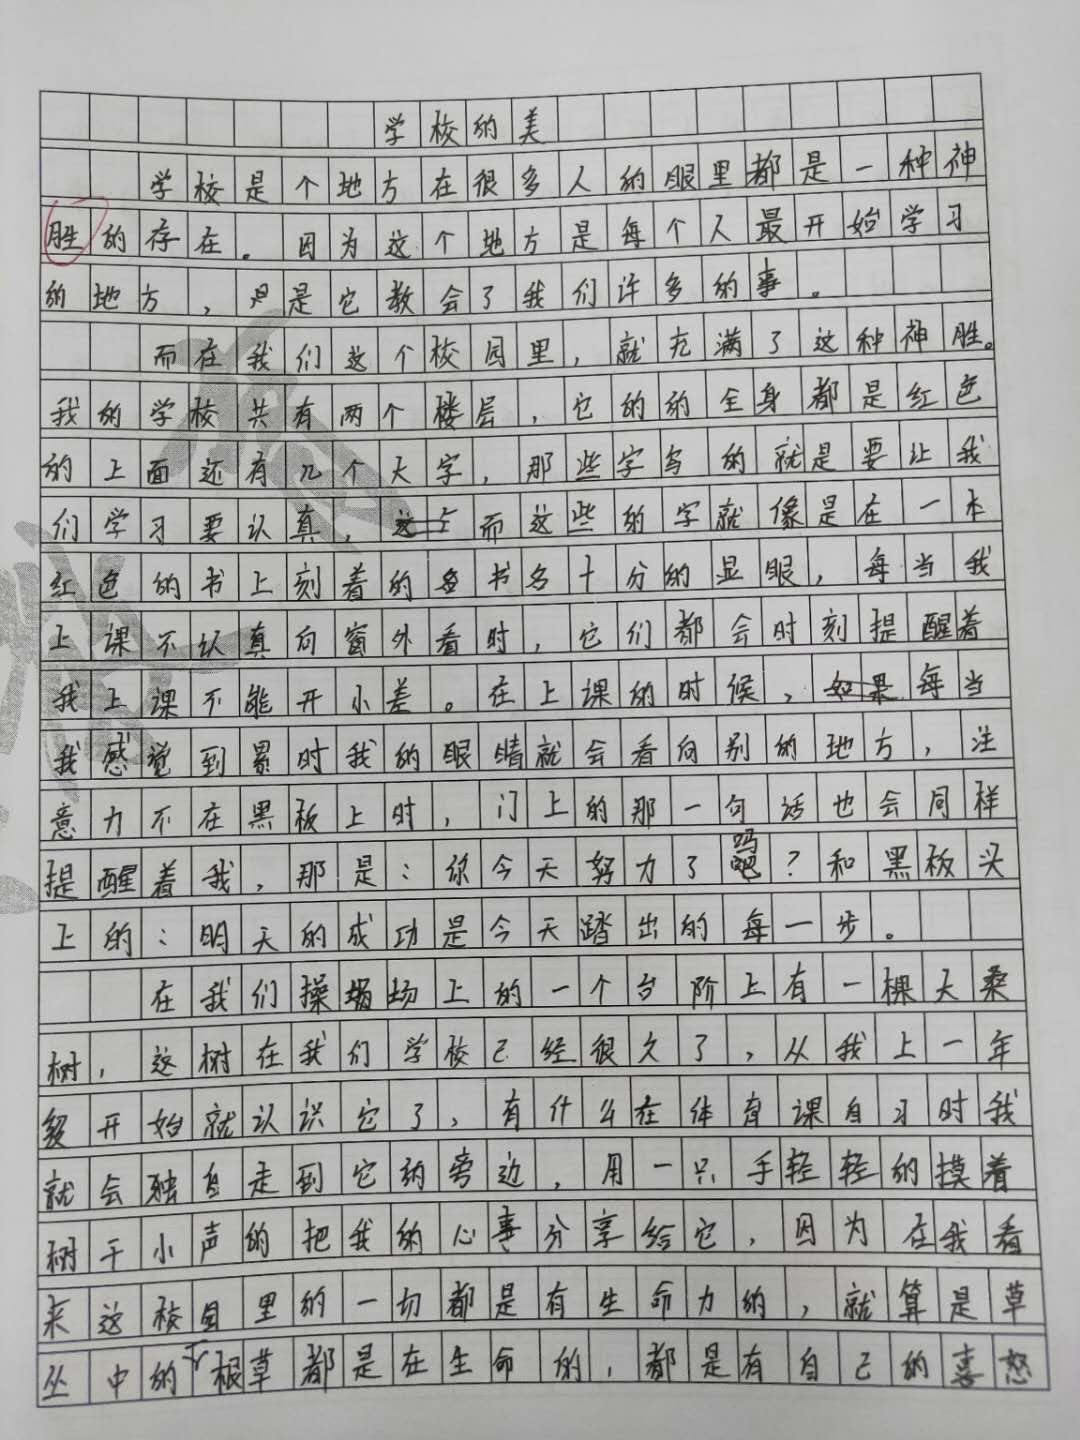 学校的美
学校是个地方在很多人的眼里都是一种神
胜的存在。因为这个地方是每个人最开始学习
的地方,只是它教会了我们许多的事。
而在我们这个校园里,就充满了这种神胜。
我的学校共有两个楼层,它的的全身都是红色
的上面还有几个大字,那些字写的就是要让我
们学习要认真,而这些的字就像是在一本
红色的书上刻着的书名十分的显眼,每当我
上课不认真向窗外看时,它们都会时刻提醒着
我上课不能开小差。在上课的时候,每当
我感觉到累时我的眼睛就会看向别的地方,注
意力不在黑板上时,门上的那一句话也会同样
提醒着我,那是:你今天努力了吗?和黑板头
上的:明天的成功是今天踏出的每一步。
在我们操场上的一个台阶上有一棵大桑
树,这树在我们学校已经很久了,从我上一年
级开始就认识它了,有什么在体育课自习时我
就会独自走到它的旁边,用一只手轻轻的摸着
树干小声的把我的心事分享给它,因为在我看
来这校园里的一切都是有生命力的,就算是草
丛中的根草都是在生命的,都是有自己的喜怒